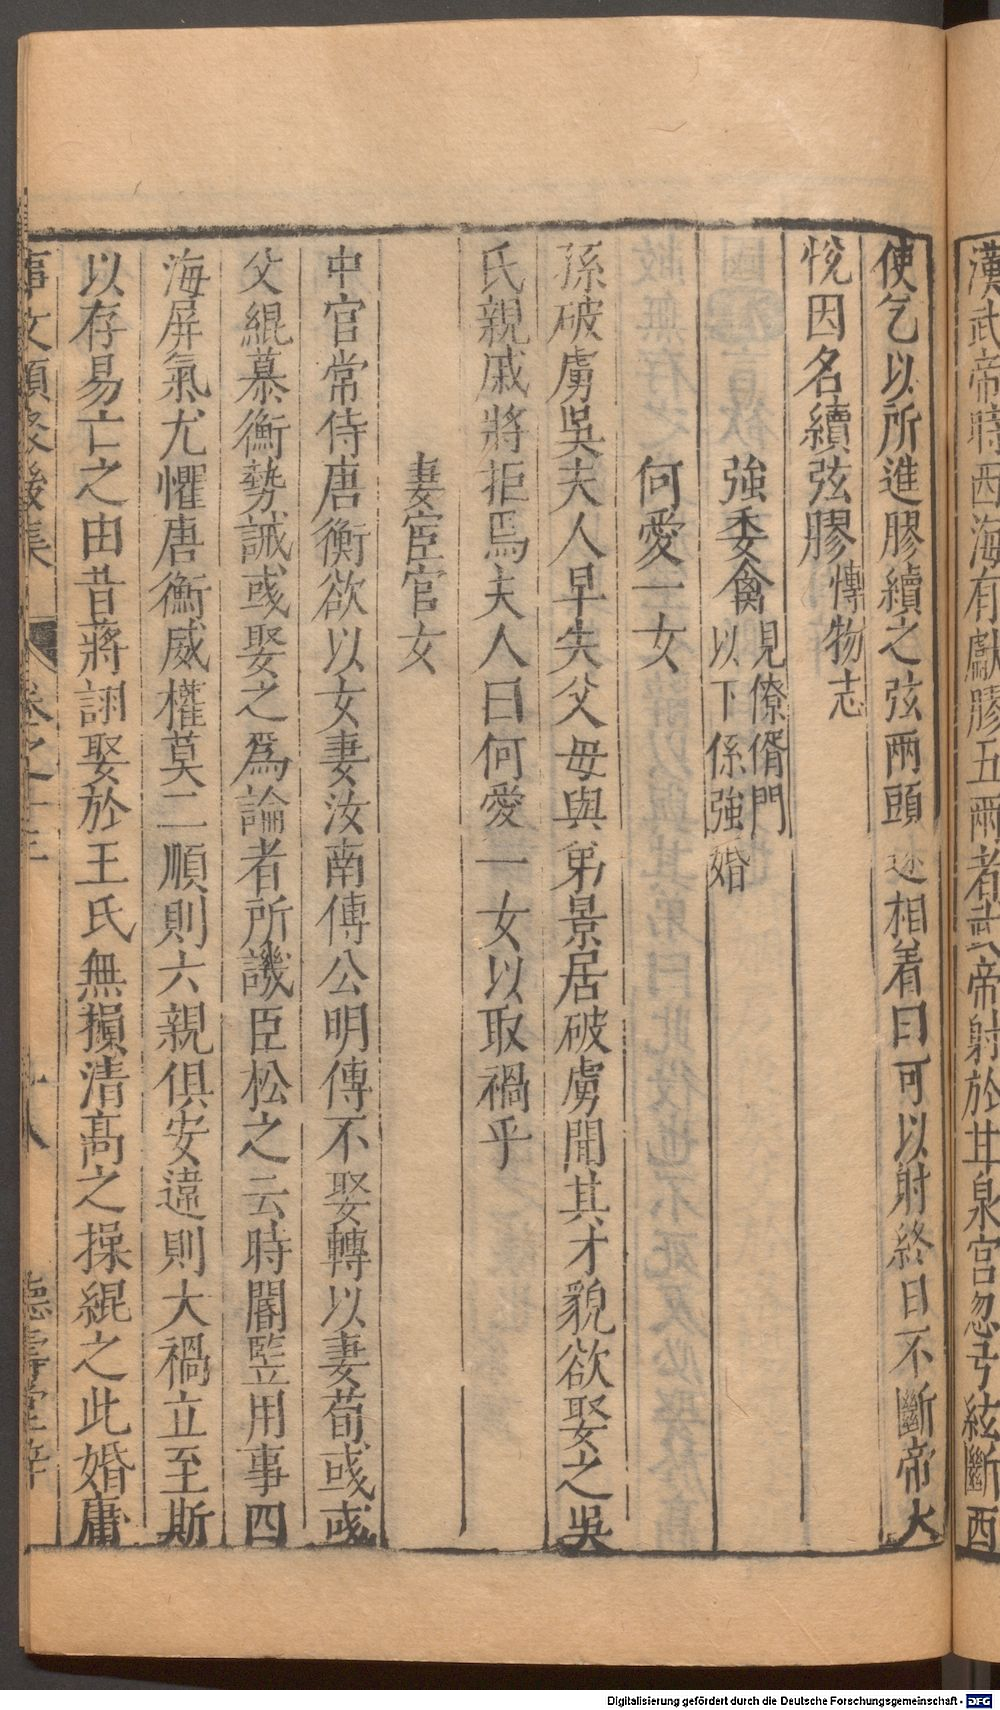 漢武帝時西海有獻膠五兩者武帝射於甘泉宮忽弓絃斷西
使乞以所進膠續之弦兩頭遂相着曰可以射終日不斷帝大
悅因名續弦膠 博物志
強委禽 見僚偦門以下係強婚
何愛一女
孫破虜吳夫人早失父母與弟景居破虜聞其才貌欲娶之吳
氏親戚將拒焉夫人曰何愛一女以取禍乎
妻宦官女
中官常侍唐衡欲以女妻汝南傅公明傅不娶轉以妻荀彧彧
父緄慕衡勢誡彧娶之為論者所譏臣松之云時閹豎用事四
海屏氣尤懼唐衡威權莫二順則六親俱安違則大禍立至斯
以存易亡之由昔蔣詡娶於王氏無損清高之操緄之此婚庸
事文類聚後集 卷之十三 十八 德壽堂梓
Digitalisierung gefördert durch die Deutsche Forschungsgemeinschaft - DFG